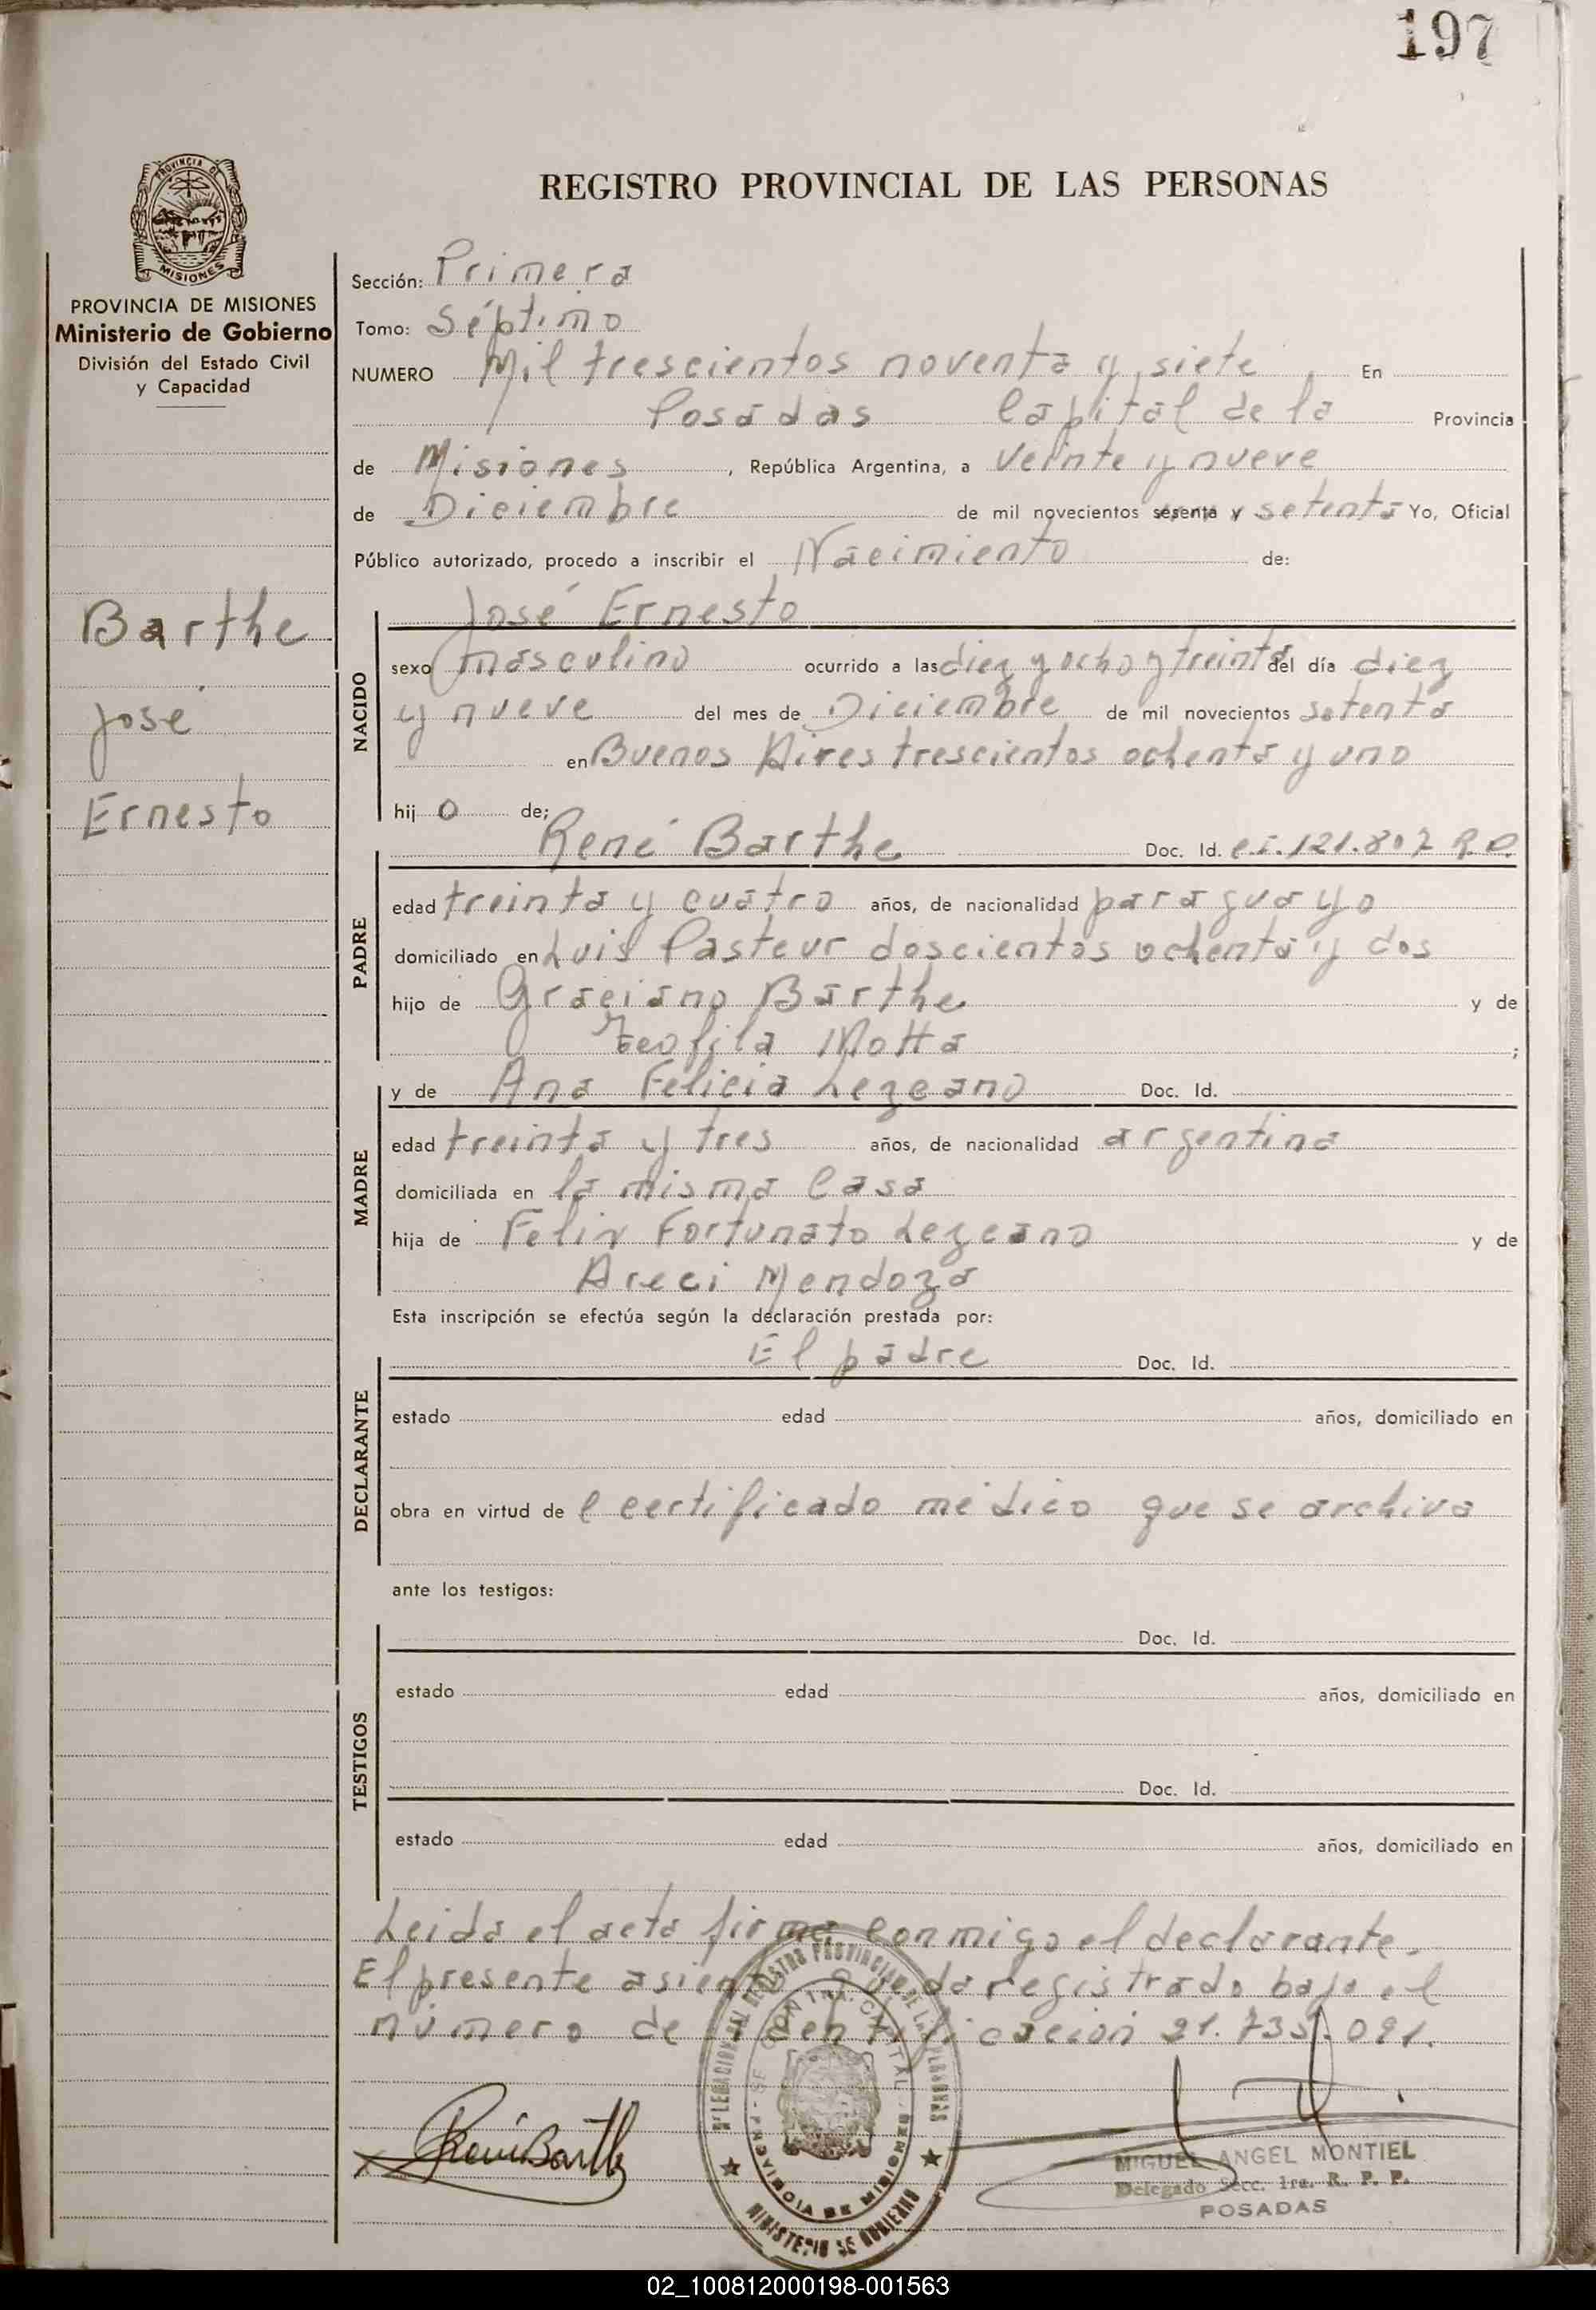 197
PROVINCIA DE
MISIONES
REGISTRO PROVINCIAL DE LAS PERSONAS
PROVINCIA DE MISIONES
Ministerio de Gobierno
División del Estado Civil
y Capacidad
Barthe
José
Ernesto
Sección: Primera
Tomo: Séptimo
NUMERO Mil trescientos noventa y siete En
Posadas Capital de la Provincia
de Misiones, República Argentina, a veinte y nueve
de Diciembre de mil novecientos sesenta y setenta Yo, Oficial
Público autorizado, procedo a inscribir el Nacimiento de:
José Ernesto
NACIDO
sexo masculino ocurrido a las diez y ocho y treinta del día diez
y nueve del mes de Diciembre de mil novecientos setenta
en Buenos Aires trescientos ochenta y uno
hijo de;
René Barthe Doc. Id. c.i. 121.807 R.P.
PADRE
edad treinta y cuatro años, de nacionalidad paraguayo
domiciliado en Luis Pasteur doscientos ochenta y dos
hijo de Graciano Barthe y de
Teofila Motta ;
y de Ana Felicia Lezcano Doc. Id.
MADRE
edad treinta y tres años, de nacionalidad argentina
domiciliada en la misma Casa
hija de Felix Fortunato Lezcano y de
Areci Mendoza
Esta inscripción se efectúa según la declaración prestada por:
El padre Doc. Id.
DECLARANTE
estado edad años, domiciliado en
obra en virtud de l certificado médico que se archiva
ante los testigos:
Doc. Id.
TESTIGOS
estado edad años, domiciliado en
Doc. Id.
estado edad años, domiciliado en
Leida el acta firma conmigo el declarante.
El presente asiento queda registrado bajo el
número de identificación 21.735.091.
René Barthe
MIGUEL ANGEL MONTIEL
Delegado Secc. 1ra. R. P. P.
POSADAS
PROVINCIA DE MISIONES
MINISTERIO DE GOBIERNO
02_100812000198-001563